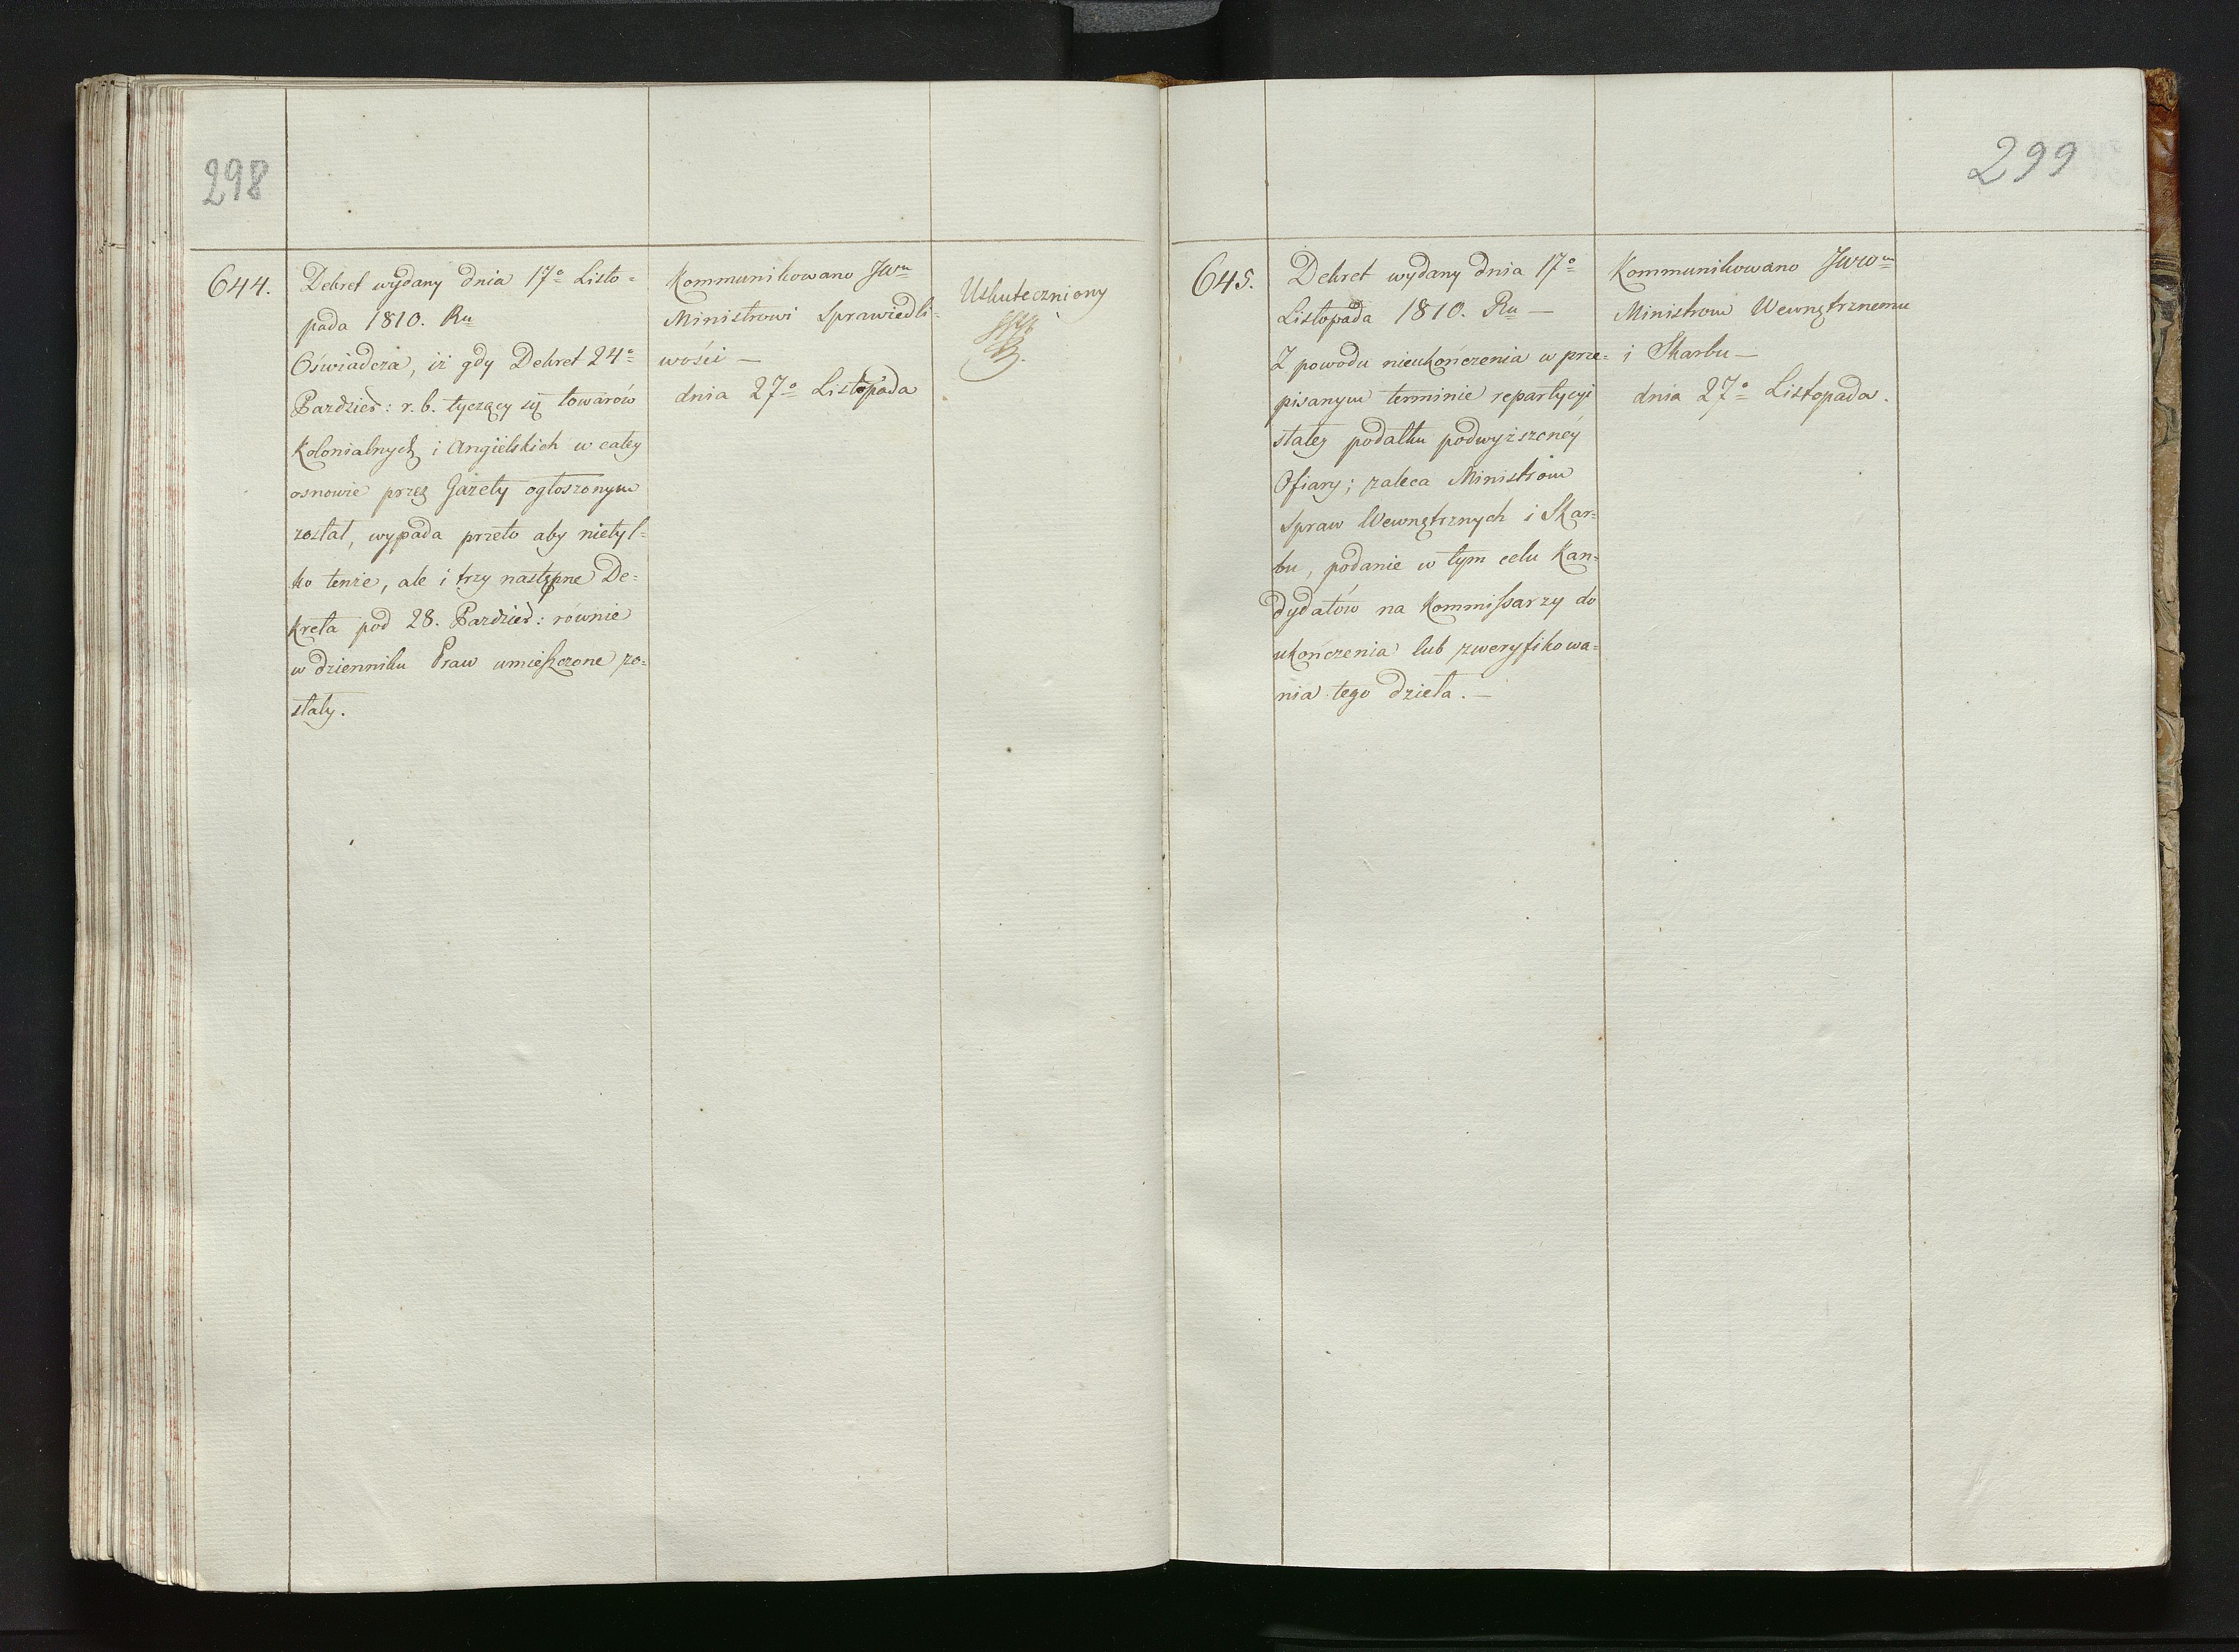 298
644.
Dekret wydany dnia 17º Listo=
pada 1810. Ru
Oświadcza, iż gdy Dekret 24º
Pazdzier: r. b. tyczący się towarów
Kolonialnych i Angielskich w całey
osnowie przez Gazety ogłoszonym
został, wypada przeto aby nietyl=
ko tenże, ale i trzy następne De=
kreta pod 28. Pazdzier: równie
w dzienniku Praw umieszczone zo=
stały.
Kommunikowano JWmu
Ministrowi Sprawiedli=
wości —
dnia 27º Listopada
Uskuteczniony
299
645.
Dekret wydany dnia 17º
Listopada 1810. Ru —
Z powodu nieukończenia w prze=
pisanym terminie repartycyi
stałey podatku podwyższoney
Ofiary; zaleca Ministrom
Spraw Wewnętrznych i Skar=
bu, podanie w tym celu Kan=
dydatów na Kommissarzy do
ukończenia lub zweryfikowa=
nia tego dzieła. —
Kommunikowano JWWom
Ministrom Wewnętrznemu
i Skarbu —
dnia 27º Listopada.